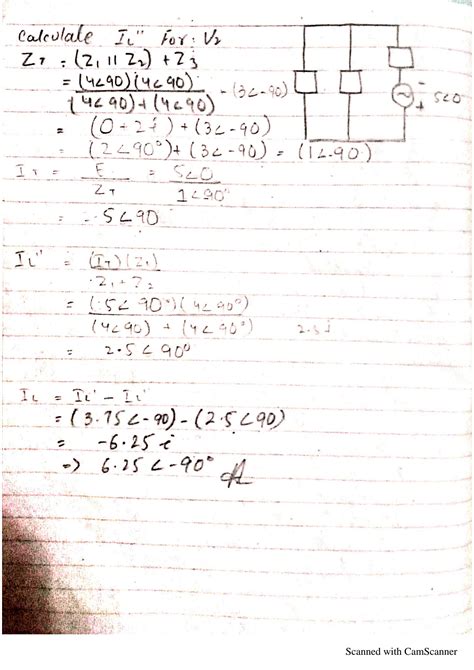 Calculate IL" For: V2
ZT = (Z1 || Z2) + Z3
= (4∠90)(4∠90) / (4∠90)+(4∠90) - (3∠-90)
= (0+2i) + (3∠-90)
= (2∠90°)+(3∠-90) = (1∠-90)
- + 5∠0
IT = E / ZT = 5∠0 / 1∠90°
= 5∠90
IL" = (IT)(Z1) / Z1+Z2
= (5∠90°)(4∠90°) / (4∠90) + (4∠90°) 2.5i
= 2.5∠90°
IL = IL' - IL"
= (3.75∠-90)-(2.5∠90)
= -6.25 i
=> 6.25∠-90°
Scanned with CamScanner